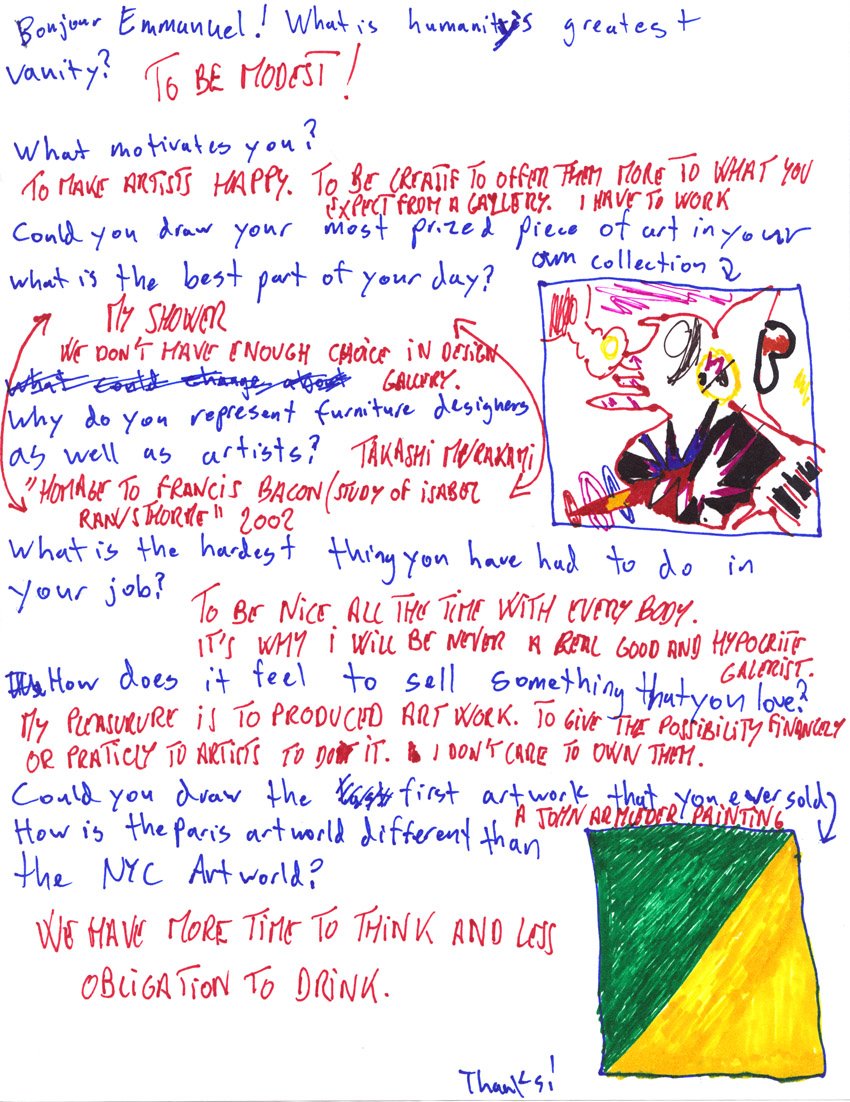 Bonjour Emmanuel! What is humanity's greatest
vanity? TO BE MODEST!
What motivates you?
TO MAKE ARTISTS HAPPY. TO BE CREATIF TO OFFER THEM MORE TO WHAT YOU
EXPECT FROM A GALLERY. I HAVE TO WORK
Could you draw your most prized piece of art in your
own collection
What is the best part of your day?
MY SHOWER
WE DON'T HAVE ENOUGH CHOICE IN DESIGN
GALLERY.
What could change about
Why do you represent furniture designers
as well as artists? TAKASHI MURAKAMI
"HOMAGE TO FRANCIS BACON (STUDY OF ISABEL
RAWSTHORNE" 2002
What is the hardest thing you have had to do in
your job?
TO BE NICE ALL THE TIME WITH EVERY BODY.
IT'S WHY I WILL BE NEVER A REAL GOOD AND HYPOCRITE
GALERIST.
How does it feel to sell something that you love?
MY PLEASURURE IS TO PRODUCED ART WORK. TO GIVE THE POSSIBILITY FINANCELY
OR PRATICLY TO ARTISTS TO DO IT. I DON'T CARE TO OWN THEM.
Could you draw the first artwork that you ever sold?
A JOHN ARMLEDER PAINTING
How is the Paris art world different than
the NYC Art world?
WE HAVE MORE TIME TO THINK AND LESS
OBLIGATION TO DRINK.
Thanks!